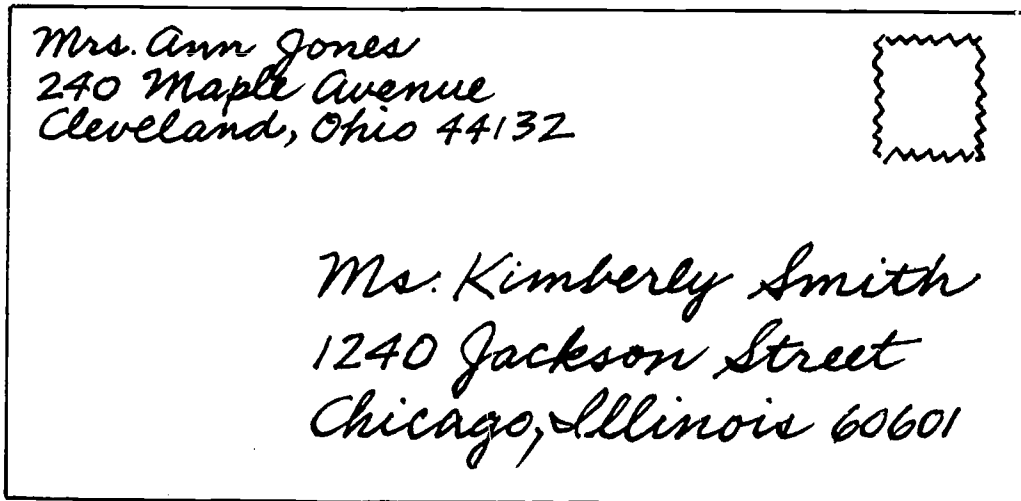 Mrs. Ann Jones
240 Maple Avenue
Cleveland, Ohio 44132
Ms. Kimberly Smith
1240 Jackson Street
Chicago, Illinois 60601